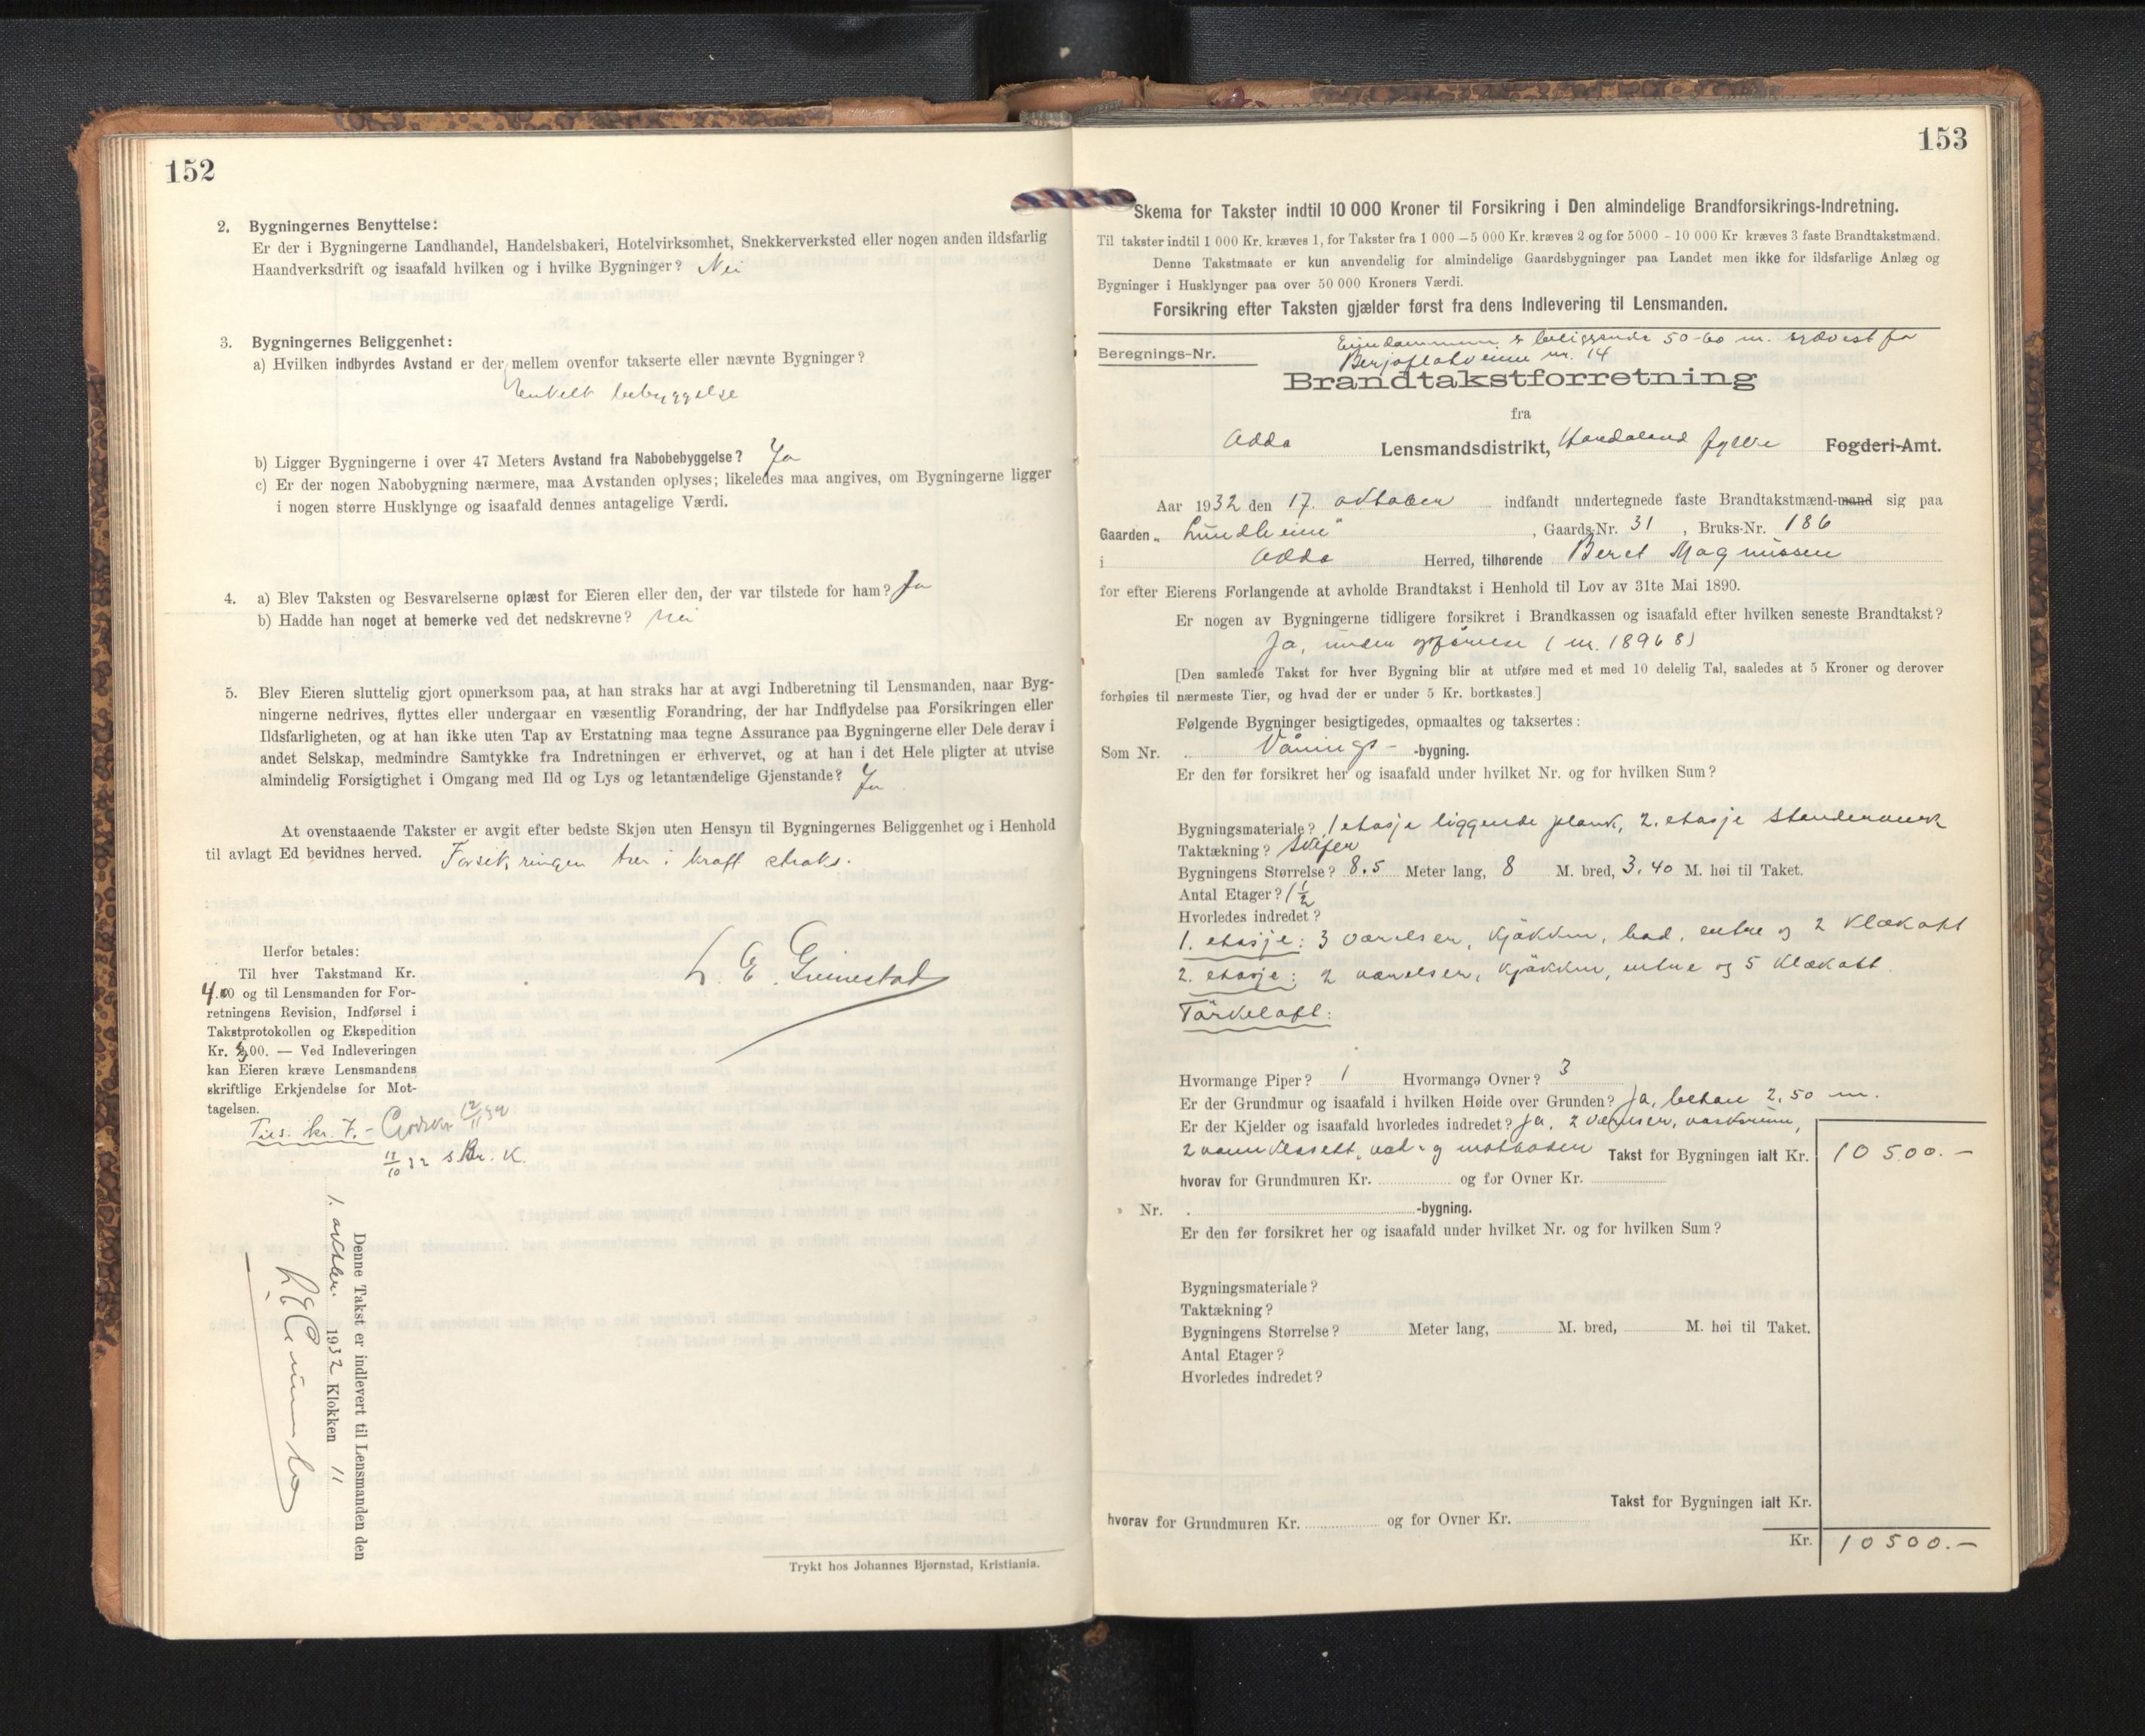 152
2. Bygningernes Benyttelse:
Er der i Bygningerne Landhandel, Handelsbakeri, Hotelvirksomhet, Snekkerverksted eller nogen anden ildsfarlig
Haandverksdrift og isaafald hvilken og i hvilke Bygninger? Nei
3. Bygningernes Beliggenhet:
a) Hvilken indbyrdes Avstand er der mellem ovenfor takserte eller nævnte Bygninger?
Enkelt bebyggelse
b) Ligger Bygningerne i over 47 Meters Avstand fra Nabobebyggelse? Ja
c) Er der nogen Nabobygning nærmere, maa Avstanden oplyses; likeledes maa angives, om Bygningerne ligger
i nogen større Husklynge og isaafald dennes antagelige Værdi.
4. a) Blev Taksten og Besvarelserne oplæst for Eieren eller den, der var tilstede for ham? Ja
b) Hadde han noget at bemerke ved det nedskrevne? Nei
5. Blev Eieren sluttelig gjort opmerksom paa, at han straks har at avgi Indberetning til Lensmanden, naar Byg-
ningerne nedrives, flyttes eller undergaar en væsentlig Forandring, der har Indflydelse paa Forsikringen eller
Ildsfarligheten, og at han ikke uten Tap av Erstatning maa tegne Assurance paa Bygningerne eller Dele derav i
andet Selskap, medmindre Samtykke fra Indretningen er erhvervet, og at han i det Hele pligter at utvise
almindelig Forsigtighet i Omgang med Ild og Lys og letantændelige Gjenstande? Ja
At ovenstaaende Takster er avgit efter bedste Skjøn uten Hensyn til Bygningernes Beliggenhet og i Henhold
til avlagt Ed bevidnes herved. Forsikringen trer i kraft straks.
Herfor betales:
Til hver Takstmand Kr.
4.00 og til Lensmanden for For-
retningens Revision, Indførsel i
Takstprotokollen og Ekspedition
Kr. 00. — Ved Indleveringen
kan Eieren kræve Lensmandens
skriftlige Erkjendelse for Mot-
tagelsen.
L. E. Grimestad
kr. 7.-
Denne Takst er indlevert til Lensmanden den
1. 1932 Klokken 11
Trykt hos Johannes Bjornstad, Kristiania.
153
Skema for Takster indtil 10 000 Kroner til Forsikring i Den almindelige Brandforsikrings-Indretning.
Til takster indtil 1 000 Kr. kræves 1, for Takster fra 1 000 — 5 000 Kr. kræves 2 og for 5000 - 10 000 Kr kræves 3 faste Brandtakstmænd.
Denne Takstmaate er kun anvendelig for almindelige Gaardsbygninger paa Landet men ikke for ildsfarlige Anlæg og
Bygninger i Husklynger paa over 50 000 Kroners Værdi.
Forsikring efter Taksten gjælder først fra dens Indlevering til Lensmanden.
Eiendommen er beliggende 50-60 m. sydvest for
Beregnings-Nr. nr. 14
Brandtakstforretning
fra
Odda Lensmandsdistrikt, Hordaland fylke Fogderi-Amt.
Aar 1932 den 17. oktober indfandt undertegnede faste Brandtakstmænd-mand sig paa
Gaarden „Lundheim", Gaards-Nr. 31, Bruks-Nr. 186
i Odda Herred, tilhørende Beret Magnussen
for efter Eierens Forlangende at avholde Brandtakst i Henhold til Lov av 31te Mai 1890.
Er nogen av Bygningerne tidligere forsikret i Brandkassen og isaafald efter hvilken seneste Brandtakst?
Ja, under opførelse (nr. 18968)
[Den samlede Takst for hver Bygning blir at utføre med et med 10 delelig Tal, saaledes at 5 Kroner og derover
forhøies til nærmeste Tier, og hvad der er under 5 Kr. bortkastes.]
Følgende Bygninger besigtigedes, opmaaltes og taksertes:
Som Nr. Vånings- -bygning.
Er den før forsikret her og isaafald under hvilket Nr. og for hvilken Sum?
Bygningsmateriale? 1 etasje liggende plank, 2. etasje stenderverk
Taktækning? Skifer
Bygningens Størrelse? 8.5 Meter lang, 8 M. bred, 3.40 M. høi til Taket.
Antal Etager? 1 1/2
Hvorledes indredet?
1. etasje: 3 værelser, kjøkken, bad, entre og 2 klækott
2. etasje: 2 værelser, kjøkken, entre og 5 klækott
Tørkeloft:
Hvormange Piper? 1 Hvormange Ovner? 3
Er der Grundmur og isaafald i hvilken Høide over Grunden? Ja, betong 2,50 m.
Er der Kjelder og isaafald hvorledes indredet? Ja, 2 værelser, vaskerum,
2 vannklosett, ved- og matboder Takst for Bygningen ialt Kr. 10500.—
hvorav for Grundmuren Kr. og for Ovner Kr.
» Nr. -bygning.
Er den før forsikret her og isaafald under hvilket Nr. og for hvilken Sum?
Bygningsmateriale?
Taktækning?
Bygningens Størrelse? Meter lang, M. bred, M. høi til Taket.
Antal Etager?
Hvorledes indredet?
Takst for Bygningen ialt Kr.
hvorav for Grundmuren Kr. og for Ovner Kr.
Kr. 10500.—